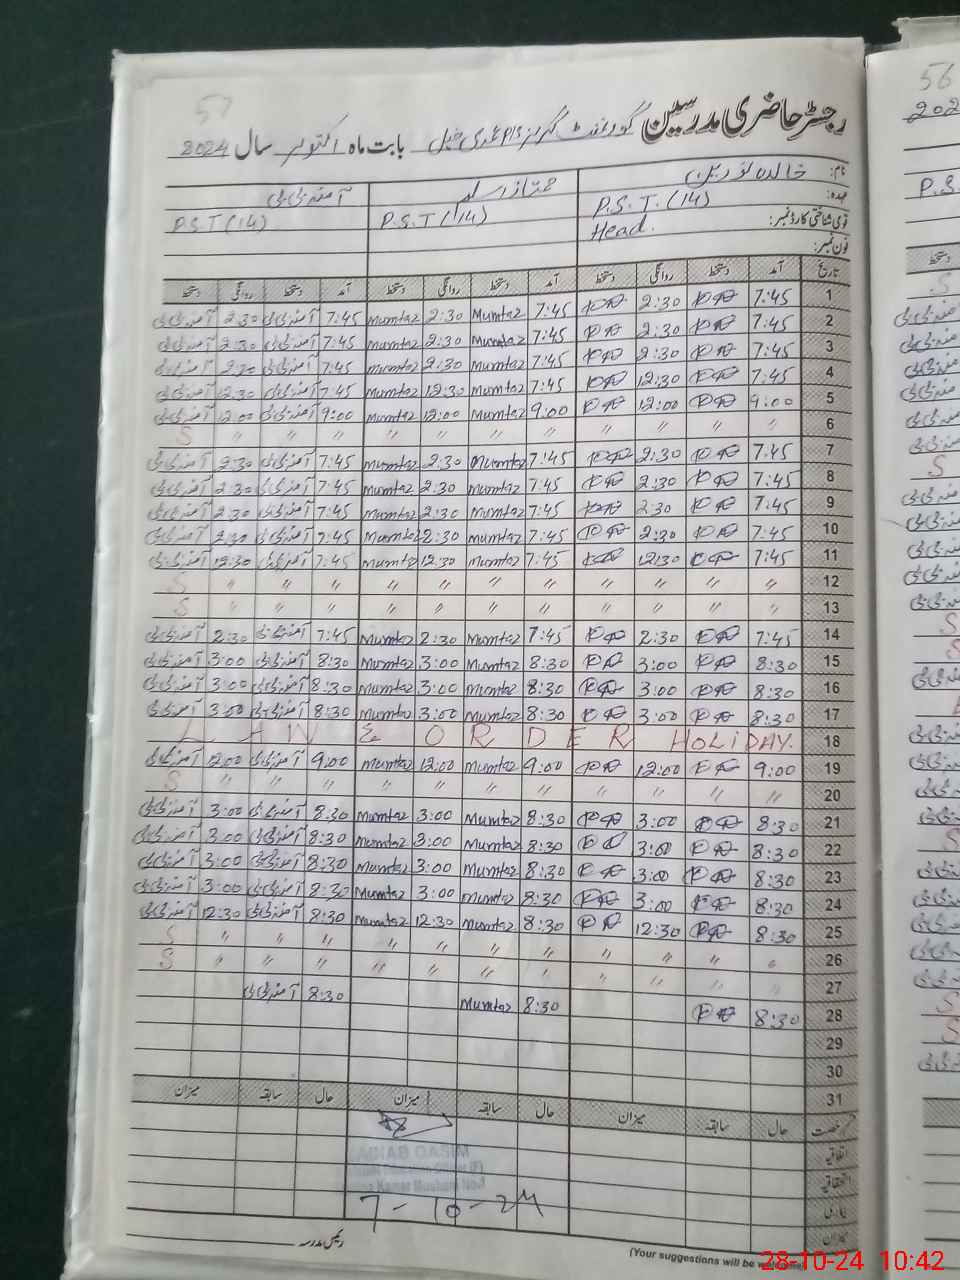 57
رجسٹر حاضری مدرسین گورنمنٹ گرلز P/S خیل بابت ماہ اکتوبر سال 2024
نام: خالدہ نورین ممتاز آمنہ بی بی
عہدہ: P.S.T.(14) P.S.T(14) P.S.T(14)
قومی شناختی کارڈ نمبر: Head.
فون نمبر:
تاریخ آمد دستخط روانگی دستخط آمد دستخط روانگی دستخط آمد دستخط روانگی دستخط
1 7:45 2:30 7:45 Mumtaz 2:30 Mumtaz 7:45 آمنہ بی بی 2:30 آمنہ بی بی
2 7:45 2:30 7:45 Mumtaz 2:30 Mumtaz 7:45 آمنہ بی بی 2:30 آمنہ بی بی
3 7:45 2:30 7:45 Mumtaz 2:30 Mumtaz 7:45 آمنہ بی بی 2:30 آمنہ بی بی
4 7:45 12:30 7:45 Mumtaz 12:30 Mumtaz 7:45 آمنہ بی بی 12:30 آمنہ بی بی
5 9:00 12:00 9:00 Mumtaz 12:00 Mumtaz 9:00 آمنہ بی بی 12:00 آمنہ بی بی
6 " " " " " " " " " " " S
7 7:45 2:30 7:45 Mumtaz 2:30 Mumtaz 7:45 آمنہ بی بی 2:30 آمنہ بی بی
8 7:45 2:30 7:45 Mumtaz 2:30 Mumtaz 7:45 آمنہ بی بی 2:30 آمنہ بی بی
9 7:45 2:30 7:45 Mumtaz 2:30 Mumtaz 7:45 آمنہ بی بی 2:30 آمنہ بی بی
10 7:45 2:30 7:45 Mumtaz 2:30 Mumtaz 7:45 آمنہ بی بی 2:30 آمنہ بی بی
11 7:45 12:30 7:45 Mumtaz 12:30 Mumtaz 7:45 آمنہ بی بی 12:30 آمنہ بی بی
12 " " " " " " " " " " " S
13 " " " " " " " " " " " S
14 7:45 2:30 7:45 Mumtaz 2:30 Mumtaz 7:45 آمنہ بی بی 2:30 آمنہ بی بی
15 8:30 3:00 8:30 Mumtaz 3:00 Mumtaz 8:30 آمنہ بی بی 3:00 آمنہ بی بی
16 8:30 3:00 8:30 Mumtaz 3:00 Mumtaz 8:30 آمنہ بی بی 3:00 آمنہ بی بی
17 8:30 3:00 8:30 Mumtaz 3:00 Mumtaz 8:30 آمنہ بی بی 3:00 آمنہ بی بی
18 LAW & ORDER HOLIDAY.
19 9:00 12:00 9:00 Mumtaz 12:00 Mumtaz 9:00 آمنہ بی بی 12:00 آمنہ بی بی
20 " " " " " " " " " " " S
21 8:30 3:00 8:30 Mumtaz 3:00 Mumtaz 8:30 آمنہ بی بی 3:00 آمنہ بی بی
22 8:30 3:00 8:30 Mumtaz 3:00 Mumtaz 8:30 آمنہ بی بی 3:00 آمنہ بی بی
23 8:30 3:00 8:30 Mumtaz 3:00 Mumtaz 8:30 آمنہ بی بی 3:00 آمنہ بی بی
24 8:30 3:00 8:30 Mumtaz 3:00 Mumtaz 8:30 آمنہ بی بی 3:00 آمنہ بی بی
25 8:30 12:30 8:30 Mumtaz 12:30 Mumtaz 8:30 آمنہ بی بی 12:30 آمنہ بی بی
26 " " " " " " " " " " " S
27 " " " " " " " " " " " S
28 8:30 8:30 Mumtaz 8:30 آمنہ بی بی
29
30
31
رخصت حال سابقہ میزان حال سابقہ میزان حال سابقہ میزان
اتفاقیہ
استحقاقیہ
بیماری
QASIM
7-10-24
رئیس مدرسہ
(Your suggestions will be
28-10-24 10:42
56
202
P.S.
دستخط